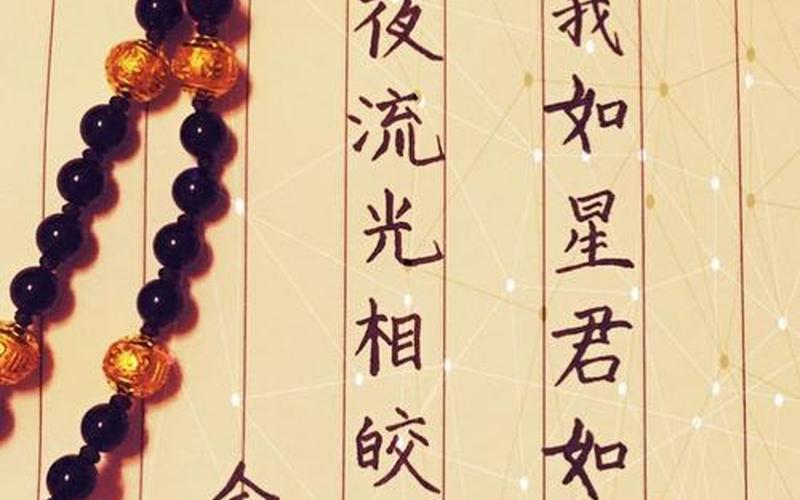 我如星君如
夜流光相皎